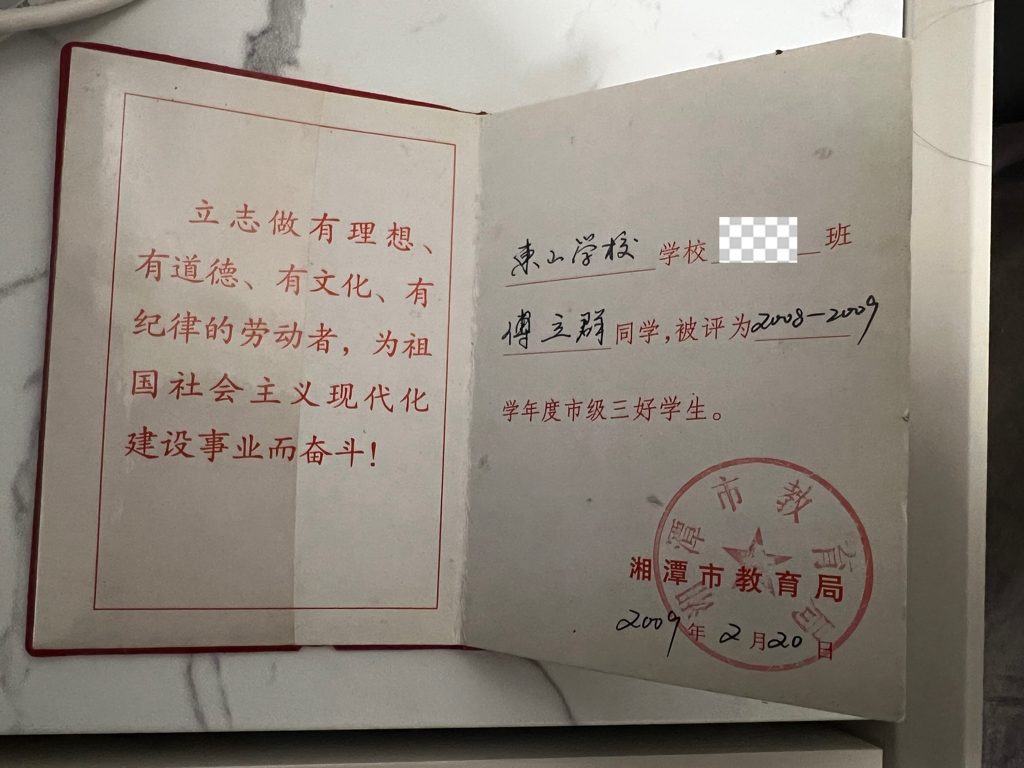 立志做有理想、
有道德、有文化、有
纪律的劳动者，为祖
国社会主义现代化
建设事业而奋斗！
東山学校学校 班
傅立群同学，被评为2008—2009
学年度市级三好学生。
湘潭市教育局
湘潭市教育局
2009年2月20日